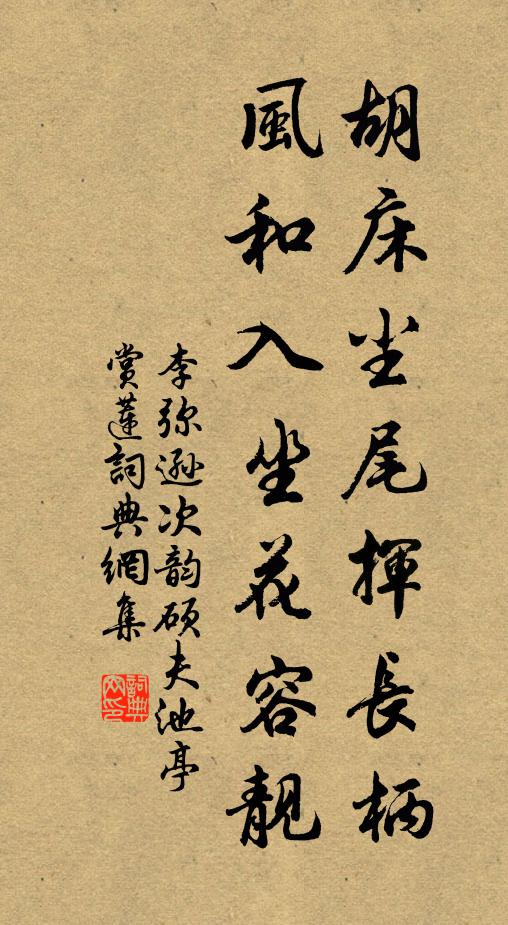 胡床尘尾揮長柄
風和入坐花容靚
李弥遜次韵碩夫池亭
賞蓮詞典網集
詞典网印